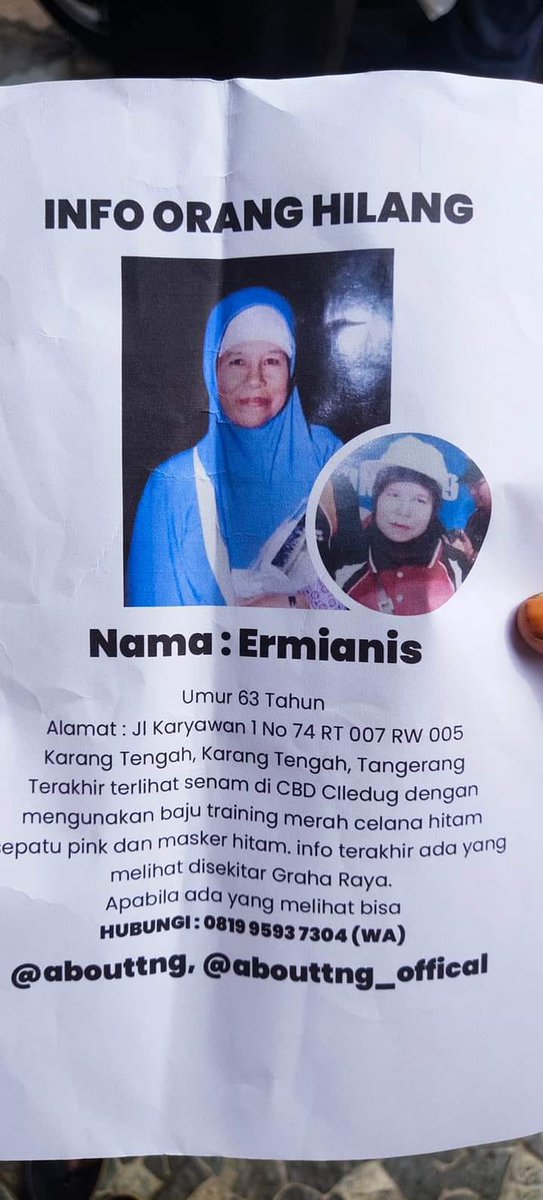 INFO ORANG HILANG
Nama : Ermianis
Umur 63 Tahun
Alamat : Jl Karyawan 1 No 74 RT 007 RW 005
Karang Tengah, Karang Tengah, Tangerang
Terakhir terlihat senam di CBD CIledug dengan
mengunakan baju training merah celana hitam
sepatu pink dan masker hitam. info terakhir ada yang
melihat disekitar Graha Raya.
Apabila ada yang melihat bisa
HUBUNGI : 0819 9593 7304 (WA)
@abouttng, @abouttng_offical